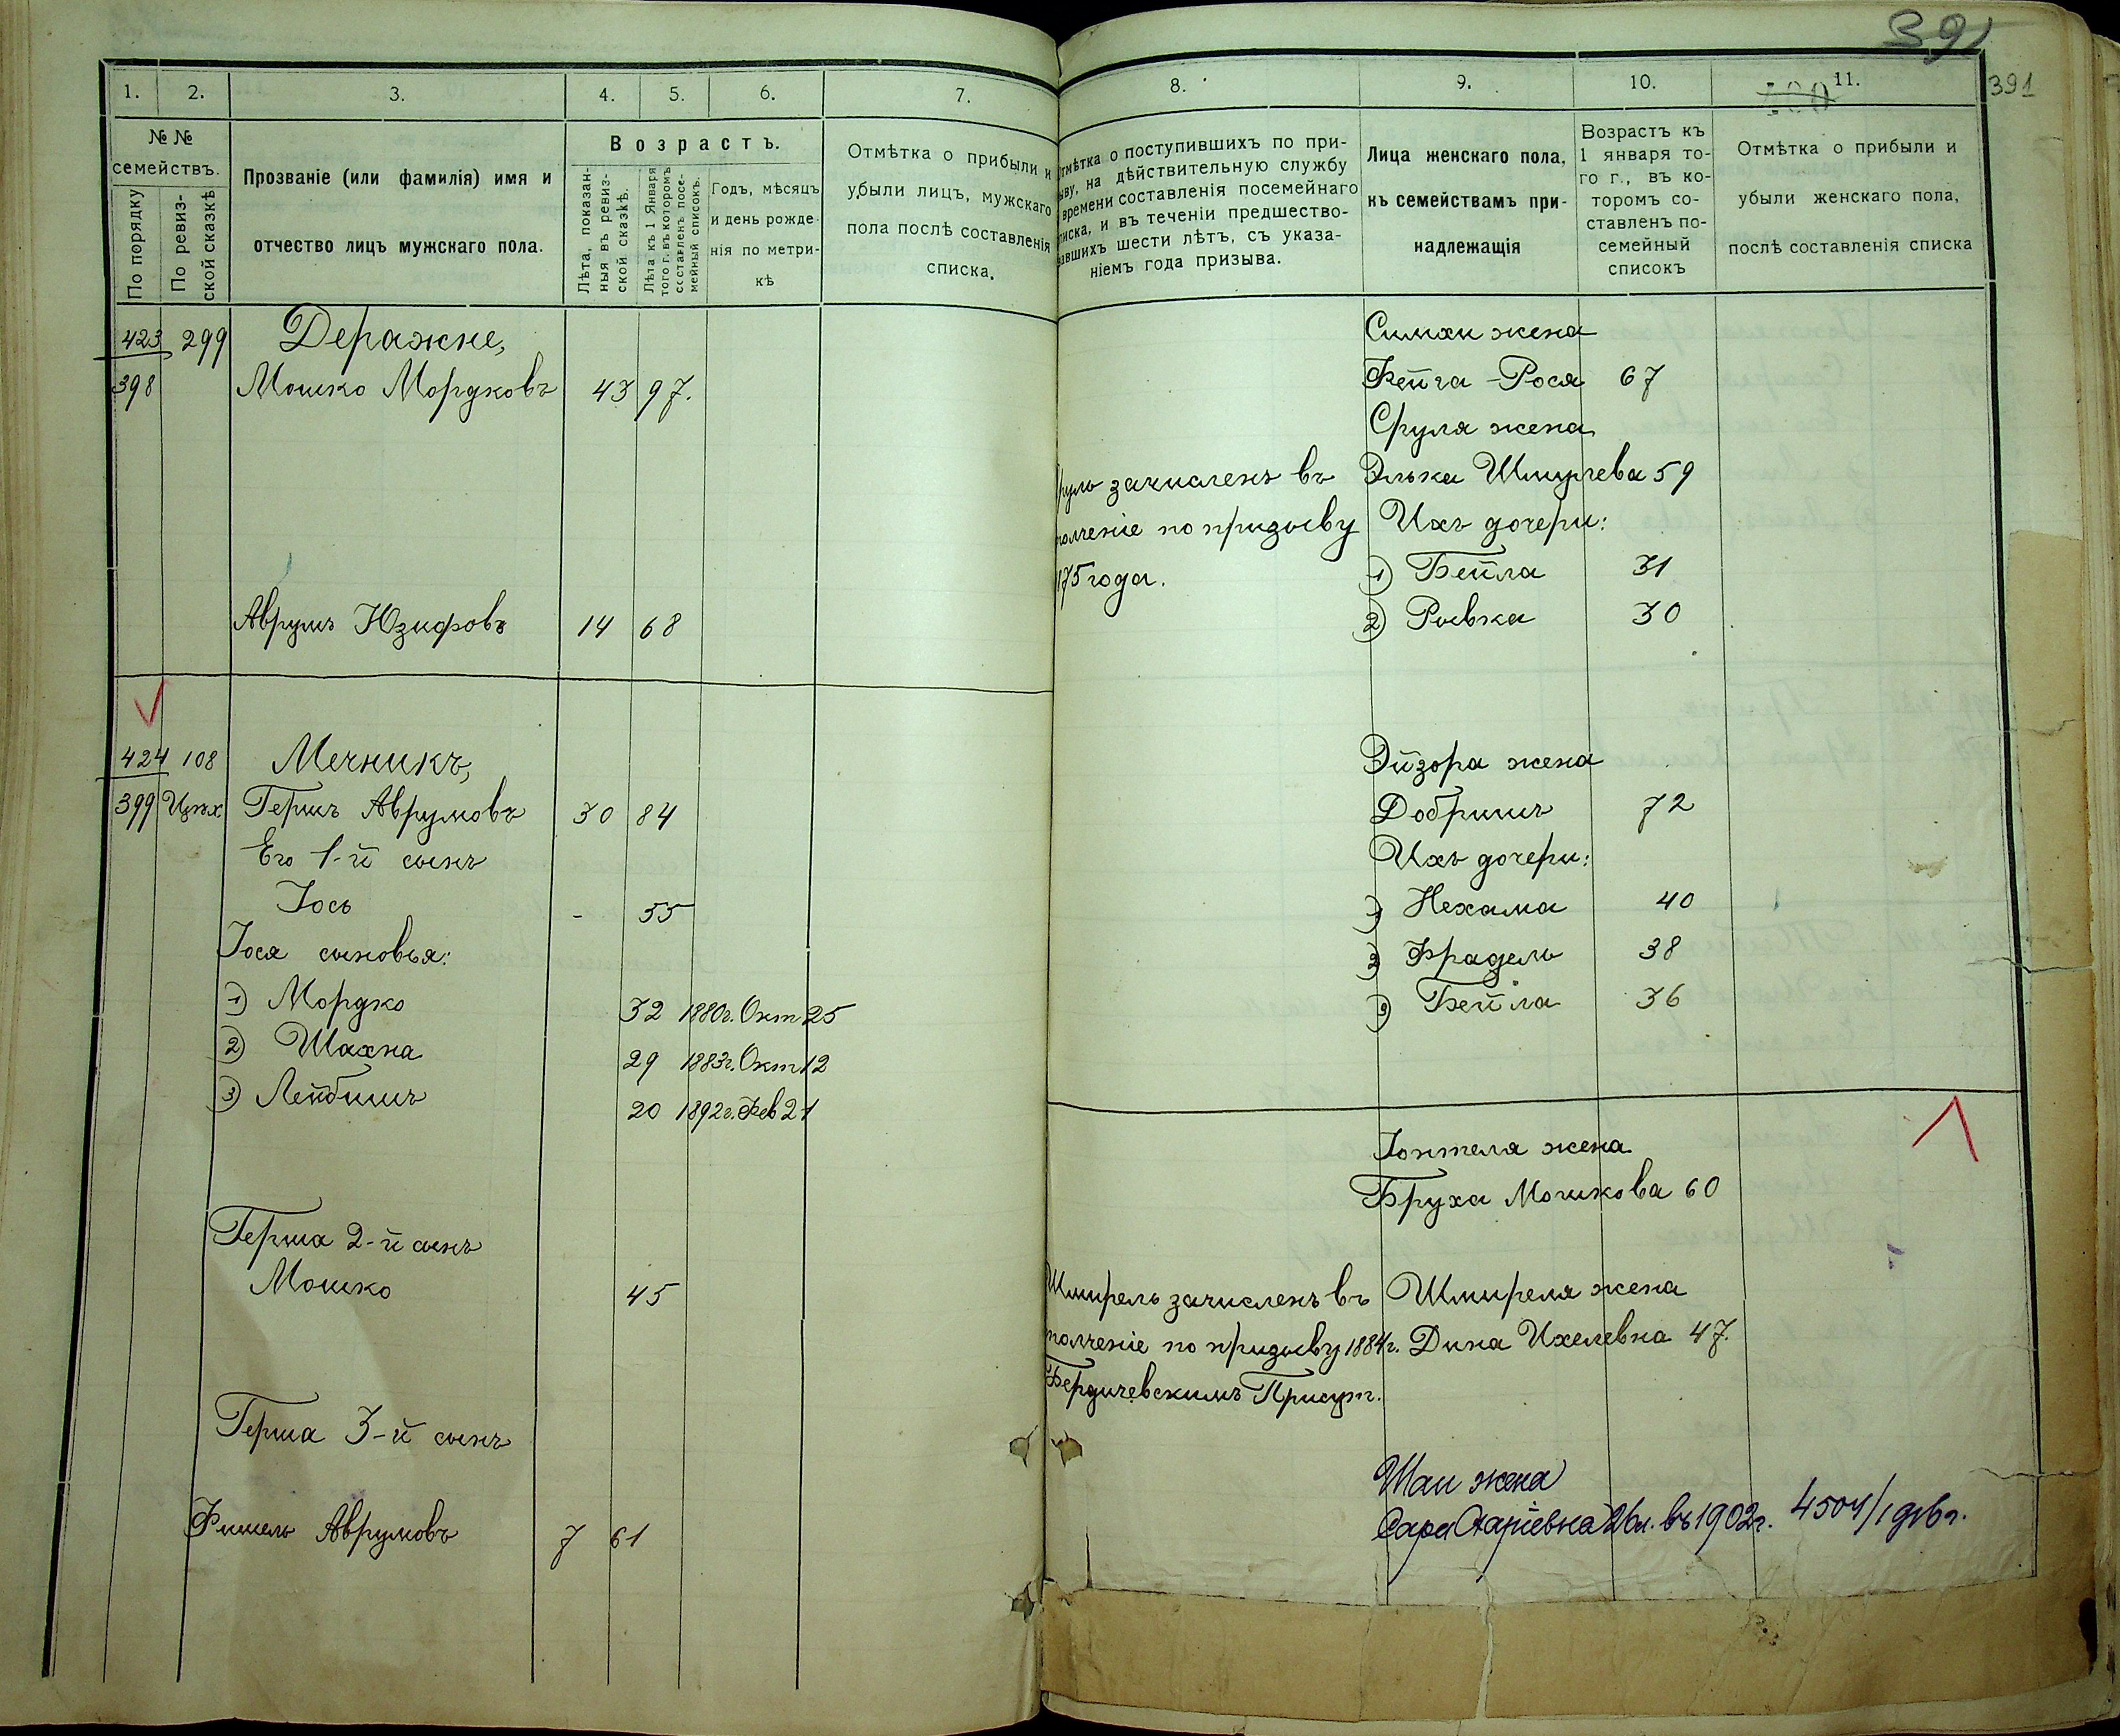 1.
2.
3.
4.
5.
6.
7.
№ №
семействъ.
По порядку
По ревиз-
ской сказкѣ
Прозваніе (или фамилія) имя и
отчество лицъ мужскаго пола.
Возрастъ.
Лѣта, показан-
ныя въ ревиз-
ской сказкѣ.
Лѣта къ 1 Января
того г. въ которомъ
составленъ посе-
мейный списокъ.
Годъ, мѣсяцъ
и день рожде-
нія по метри-
кѣ
Отмѣтка о прибыли и
убыли лицъ, мужскаго
пола послѣ составленія
списка.
423 299 Деражне,
398 Мошко Мордковъ 43 97.
Аврумъ Юзифовъ 14 68
424 108 Мечникъ,
399 Гершъ Аврумовъ 30 84
Его 1-й сынъ
Іось - 55
Іося сыновья:
1) Мордко 32 1880г. Окт 25
2) Шахна 29 1883г. Окт 12
3) Лейбишъ 20 1892г. Фев 21
Герша 2-й сынъ
Мошко 45
Герша 3-й сынъ
Фишель Аврумовъ 7 61
391
391
8.
9.
10.
11.
Отмѣтка о поступившихъ по при-
зыву, на дѣйствительную службу
времени составленія посемейнаго
списка, и въ теченіи предшество-
вавшихъ шести лѣтъ, съ указа-
ніемъ года призыва.
Лица женскаго пола,
къ семействамъ при-
надлежащія
Возрастъ къ
1 января то-
го г., въ ко-
торомъ со-
ставленъ по-
семейный
списокъ
Отмѣтка о прибыли и
убыли женскаго пола,
послѣ составленія списка
Симхи жена
Фейга-Рося 67
Сруля жена
руль зачисленъ въ Элька Шмулева 59
полченіе по призыву Ихъ дочери:
175 года. 1) Бейла 31
2) Ривка 30
Эйзора жена
Добришъ 72
Ихъ дочери:
1) Нехама 40
2) Фрадель 38
3) Бейла 36
Іонтеля жена
Бруха Мошкова 60
Шмирель зачисленъ въ Шмиреля жена
полченіе по призыву 1884г. Дина Ихелевна 47.
Бердичевскимъ Присут.
Шаи жена
Сара 26л. въ 1902г.